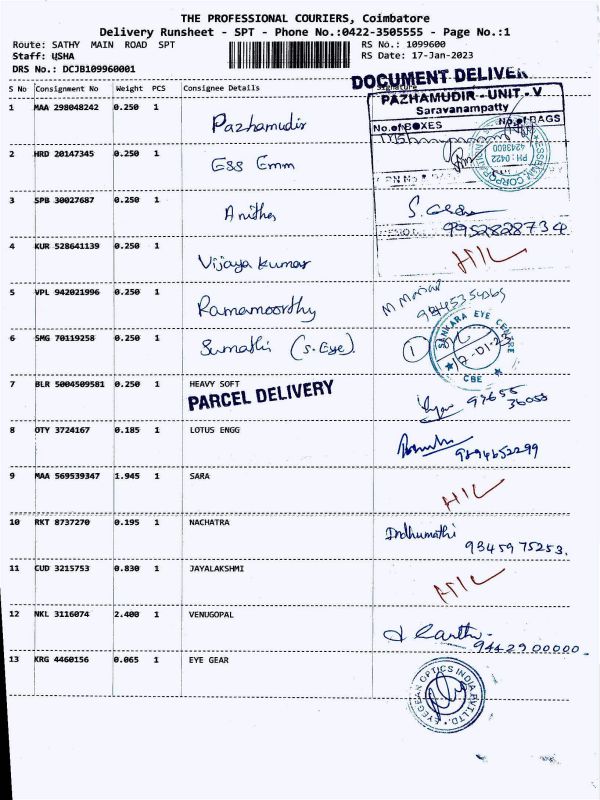 THE PROFESSIONAL COURIERS, Coimbatore
Delivery Runsheet - SPT - Phone No.:0422-3505555 - Page No.:1
Route: SATHY MAIN ROAD SPT RS No.: 1099600
Staff: USHA RS Date: 17-Jan-2023
DRS No.: DCJB109960001
DOCUMENT DELIVER
S No Consignment No Weight PCS Consignee Details Signature
PAZHAMUDIR - UNIT - V
Saravanampatty
No.of BOXES No.of BAGS
1 MAA 298048242 0.250 1 Pazhamudir
2 HRD 20147345 0.250 1 Ess Emm
ESSEMM CORPORATION
PH : 0422
4243800
3 SPB 30027687 0.250 1 Anitha
9952828734
4 KUR 528641139 0.250 1 Vijaya Kumar H/L
5 VPL 942021996 0.250 1 Ramamoorthy
6 SMG 70119258 0.250 1 Sumathi (S. Eye). 1
SANKARA EYE CENTRE
CBE
7 BLR 5004509581 0.250 1 HEAVY SOFT
PARCEL DELIVERY
8 OTY 3724167 0.185 1 LOTUS ENGG
9894652299
9 MAA 569539347 1.945 1 SARA H/L
10 RKT 8737270 0.195 1 NACHATRA Indhumathi
9345975253.
11 CUD 3215753 0.830 1 JAYALAKSHMI H/L
12 NKL 3116074 2.400 1 VENUGOPAL
9442900000.
13 KRG 4460156 0.065 1 EYE GEAR
EYEGEAR OPTICS INDIA PVT.LTD.